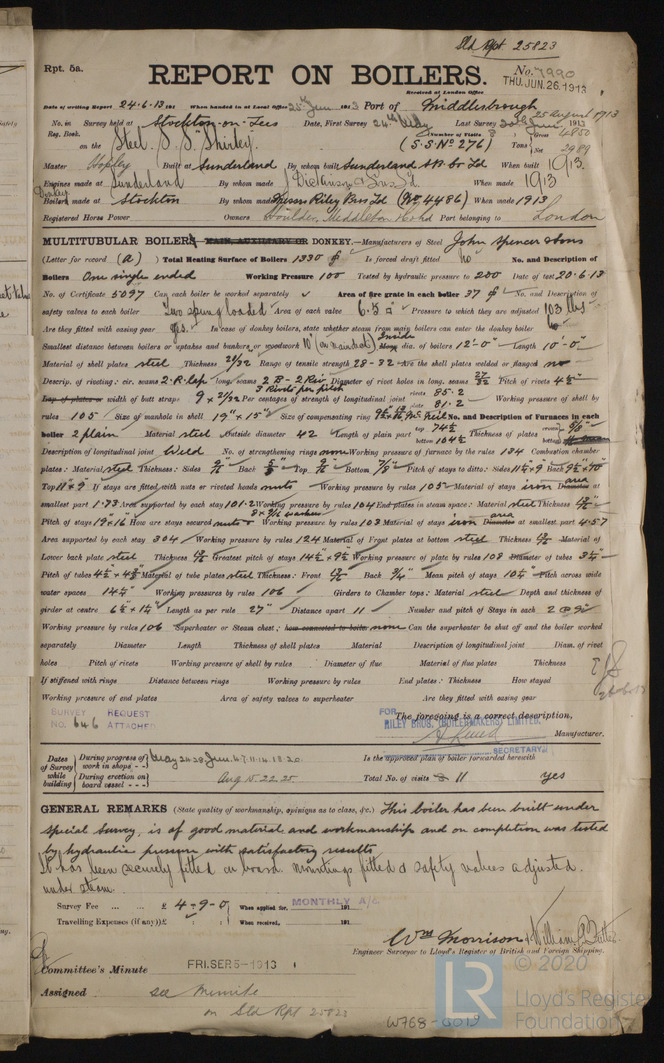 Sld Rpt 25823
Rpt. 5a.
No. 7990
REPORT ON BOILERS.
Received at London Office THU. JUN. 26. 1913
Date of writing Report 24.6.13 191 When handed in at Local Office 25 Jun 1913 Port of Middlesbrough
No. in Survey held at Stockton-on-Tees Date, First Survey 24th May Last Survey 25 August 1913
Reg. Book. (Number of Visits
on the Steel S.S. "Shirley" (S.S. No 276) Tons Gross 4850
Net 2989
Master Hopley Built at Sunderland By whom built Sunderland S.B. Co Ld When built 1913
Engines made at Sunderland By whom made J. Dickinson & Sons Ld. When made 1913
Donkey Boilers made at Stockton By whom made Messrs Riley Bros Ld (No. 4486) When made 1913
Registered Horse Power Owners Houlder, Middleton & Co Ld Port belonging to London
MULTITUBULAR BOILERS MAIN, AUXILIARY OR DONKEY.—Manufacturers of Steel John Spencer & Sons
(Letter for record (a) ) Total Heating Surface of Boilers 1330 Is forced draft fitted no No. and Description of
Boilers One single ended Working Pressure 100 Tested by hydraulic pressure to 200 Date of test 20.6.13
No. of Certificate 5097 Can each boiler be worked separately ✓ Area of fire grate in each boiler 37 No. and Description of
safety valves to each boiler Two spring loaded Area of each valve 6.5 Pressure to which they are adjusted 103 lbs
Are they fitted with easing gear yes. In case of donkey boilers, state whether steam from main boilers can enter the donkey boiler no
Smallest distance between boilers or uptakes and bunkers or woodwork 10" Inside dia. of boilers 12'-0" Length 10'-0"
Material of shell plates steel Thickness 21/32 Range of tensile strength 28-32 Are the shell plates welded or flanged no
Descrip. of riveting: cir. seams 2.R.lap long. seams 2 B-2 Riv Diameter of rivet holes in long. seams 27/32 Pitch of rivets 4 1/2"
Lap of plates or width of butt straps 9 x 2/32 Per centages of strength of longitudinal joint rivets 85.2 plate 81.2 Working pressure of shell by
rules 105 Size of manhole in shell 19" x 15" Size of compensating ring McNeil No. and Description of Furnaces in each
boiler 2 plain Material steel Outside diameter 42 Length of plain part top 74 1/2 bottom 104 1/2 Thickness of plates crown bottom
Description of longitudinal joint Weld No. of strengthening rings none Working pressure of furnace by the rules 134 Combustion chamber
plates: Material steel Thickness: Sides Back Top Bottom Pitch of stays to ditto: Sides 11 1/2 x 9 Back 9 1/2 x 10"
Top 11 x 9 If stays are fitted with nuts or riveted heads nuts Working pressure by rules 105 Material of stays iron area Diameter at
smallest part 1.73 Area supported by each stay 101.2 Working pressure by rules 104 End plates in steam space: Material steel Thickness
Pitch of stays 19 x 16 How are stays secured nuts & washers Working pressure by rules 103 Material of stays iron area Diameter at smallest part 4.57
Area supported by each stay 304 Working pressure by rules 124 Material of Front plates at bottom steel Thickness Material of
Lower back plate steel Thickness Greatest pitch of stays 14 1/2 x 9 1/2 Working pressure of plate by rules 108 Diameter of tubes 3 1/4
Pitch of tubes 4 1/2 x 4 3/8 Material of tube plates steel Thickness: Front Back 3/4" Mean pitch of stays 10 Pitch across wide
water spaces 14 Working pressures by rules 106 Girders to Chamber tops: Material steel Depth and thickness of
girder at centre 6 1/2 x 1 1/4 Length as per rule 27" Distance apart 11 Number and pitch of Stays in each 2 @ 9
Working pressure by rules 106 Superheater or Steam chest; how connected to boiler none Can the superheater be shut off and the boiler worked
separately Diameter Length Thickness of shell plates Material Description of longitudinal joint Diam. of rivet
holes Pitch of rivets Working pressure of shell by rules Diameter of flue Material of flue plates Thickness
If stiffened with rings Distance between rings Working pressure by rules End plates: Thickness How stayed
Working pressure of end plates Area of safety valves to superheater Are they fitted with easing gear
SURVEY REQUEST
NO. 646 ATTACHED
The foregoing is a correct description,
FOR RILEY BROS. (BOILERMAKERS) LIMITED.
Manufacturer.
SECRETARY.
Dates of Survey while building
During progress of work in shops - - May 24.28. Jun. 4.7.11.14.18.20
During erection on board vessel - - - Aug 15.22.25
Is the approved plan of boiler forwarded herewith
Total No. of visits 11 yes
GENERAL REMARKS (State quality of workmanship, opinions as to class, &c.) This boiler has been built under
special survey, is of good material and workmanship and on completion was tested
by hydraulic pressure with satisfactory results
It has been securely fitted on board. mountings fitted & safety valves adjusted.
under steam.
Survey Fee ... ... £ 4-9-0 When applied for, MONTHLY A/C 191
Travelling Expenses (if any) £ : : When received, 191
Wm Morrison & William Butler.
Engineer Surveyor to Lloyd's Register of British and Foreign Shipping.
Committee's Minute FRI. SEP. 5-1913
Assigned see minute
on Sld Rpt 25823
W768-0019
LR
© 2020
Lloyd's Register
Foundation